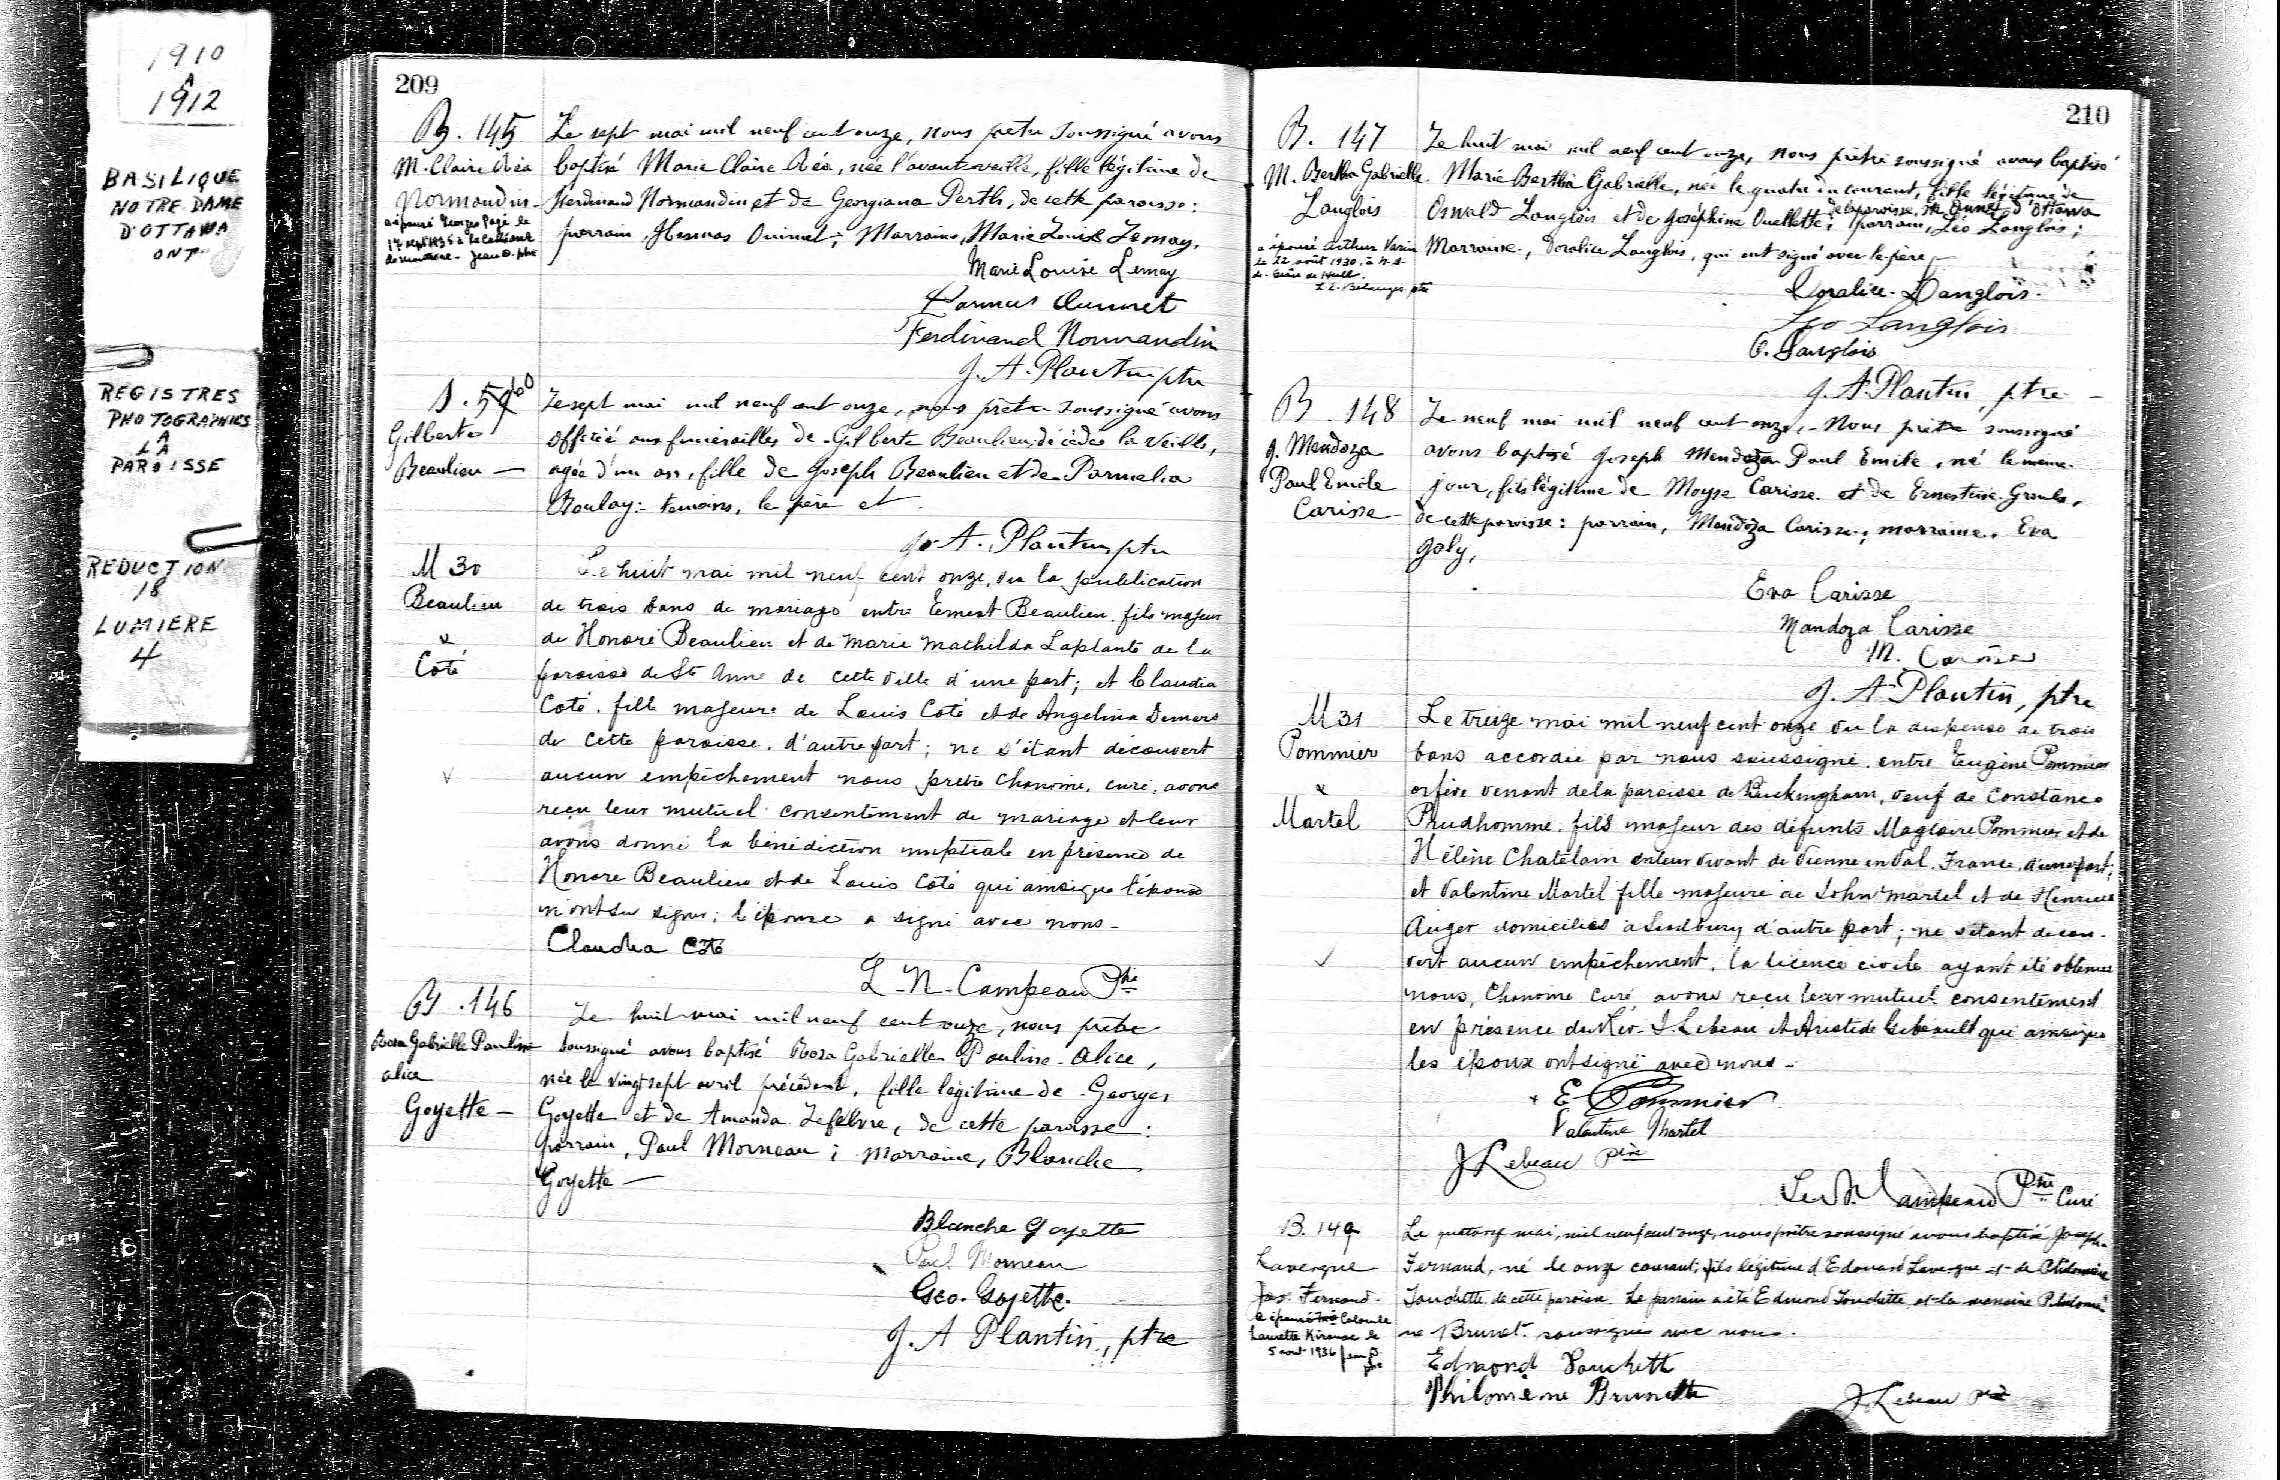 1910
A
1912
BASILIQUE
NOTRE DAME
D'OTTAWA
ONT
REGISTRES
PHOTOGRAPHIES
A
LA
PAROISSE
REDUCTION
18
LUMIERE
4
209
B. 145
M. Claire Réa
Normandin
a épousé Georges Pagé le
17 sept 1935 à la Cathédrale
Le sept mai mil neuf cent onze, nous prêtre soussigné avons
baptisé Marie Claire Réa, née l'avant-veille, fille légitime de
Ferdinand Normandin et de Georgiana Perth, de cette paroisse:
parrain, Hermas Ouimet; Marraine, Marie Louise Lemay.
Marie Louise Lemay
Hormas Ouimet
Ferdinand Normandin
J. A. Plantin ptre
S. 60
Gilberte
Beaulieu —
Le sept mai mil neuf cent onze, nous prêtre soussigné avons
officié aux funérailles de Gilberte Beaulieu, décédée la veille,
agée d'un an, fille de Joseph Beaulieu et de Parmelia
Boulay: temoins, le père et
J. A. Plantin ptre
M 30
Beaulieu
&
Coté
Le huit mai mil neuf cent onze, vu la publication
de trois bans de mariage entre Ernest Beaulieu, fils majeur
de Honoré Beaulieu et de Marie Mathilda Laplante de la
paroisse de Ste Anne de cette ville d'une part; et Claudia
Coté, fille majeure de Louis Coté et de Angelina Demers
de cette paroisse, d'autre part; ne s'étant découvert
aucun empêchement nous prêtre Chanoine, curé, avons
reçu leur mutuel consentement de mariage et leur
avons donné la bénédiction nuptiale en présence de
Honoré Beaulieu et de Louis Coté qui ainsi que l'époux
n'ont su signer; l'épouse a signé avec nous -
Claudia Coté
L. N. Campeau Ptre
B. 146
Rosa Gabrielle Pauline
Alice
Goyette —
Le huit mai mil neuf cent onze, nous prêtre
soussigné avons baptisé Rosa Gabrielle Pauline Alice,
née le vingt sept avril précédent, fille légitime de Georges
Goyette et de Amanda Lefebvre, de cette paroisse:
parrain, Paul Morneau; Marraine, Blanche
Goyette —
Blanche Goyette
Paul Morneau
Geo. Goyette.
J. A Plantin, ptre
210
B. 147
M. Bertha Gabrielle
Langlois
a épousé Arthur Varin
le 22 août 1930, à N. D.
de Grâce de Hull.
Le huit mai mil neuf cent onze, nous prêtre soussigné avons baptisé
Marie Bertha Gabrielle, née le quatre du courant, fille légitime de
de la paroisse Ste Anne d'Ottawa
Oswald Langlois et de Joséphine Ouellette; parrain, Leo Langlois;
Marraine, Doralice Langlois, qui ont signé avec le père
Doralice Langlois.
Leo Langlois
O. Langlois
J. A. Plantin, ptre
B. 148
J. Mendoza
Paul Emile
Carisse
Le neuf mai mil neuf cent onze, Nous prêtre soussigné
avons baptisé Joseph Mendoza Paul Emile, né le même
jour, fils légitime de Moyse Carisse et de Ernestine Groulx,
de cette paroisse: parrain, Mendoza Carisse; marraine, Eva
Goly,
Eva Carisse
Mandoza Carisse
M. Carisse
J. A. Plantin, ptre
M 31
Pommier
&
Martel
Le treize mai mil neuf cent onze vu la dispense de trois
bans accordée par nous soussigné entre Eugène Pommier
orfèvre venant de la paroisse de Buckingham, veuf de Constance
Prudhomme, fils majeur des défunts Magloire Pommier et de
Hélène Chatelain en leur vivant de Vienne en Val, France, d'une part;
et Valentine Martel fille majeure de John Martel et de Henriette
Auger domiciliés à Sudbury d'autre part; ne s'étant decou-
vert aucun empêchement, la licence civile ayant été obtenue
nous, Chanoine Curé, avons reçu leur mutuel consentement
en présence du Rév. J. Lebeau et Aristide Gibeault qui ainsi que
les époux ont signé avec nous -
E Pommier
Valentine Martel
J Lebeau ptre
Campeau Ptre Curé
B. 149
Lavergne
Jos. Fernand
a épousé Colombe
Laurette Kirouac le
5 aout 1936
Le quatorze mai, mil neuf cent onze, nous prêtre soussigné avons baptisé Joseph
Fernand, né le onze courant, fils légitime d'Edouard Lavergne et de Philomène
Touchette de cette paroisse. Le parrain a été Edmond Touchette et la marraine Philomè
ne Brunet soussignés avec nous.
Edmond Touchette
Philomène Brunette
J Lebeau ptre